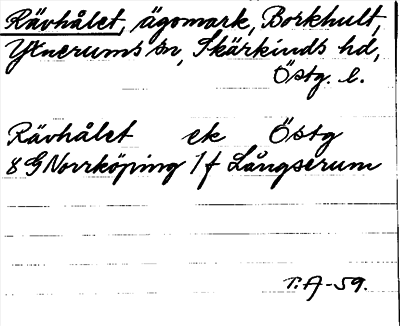 Rävhålet, ägomark, Borkhult,
Yxnerums sn, Skärkinds hd,
Östg. l.
Rävhålet ek Östg
8G Norrköping 1f Långserum
T.A-59.